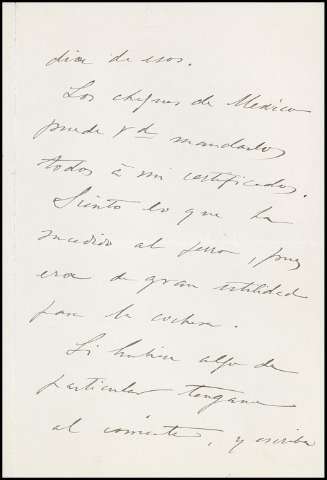 dia de esos.
Los cheques de Mexico
puede Vd mandarlos
todos á mi certificados.
Siento lo que ha
sucedido al perro, pues
era de gran utilidad
para la cochera.
Si hubiere algo de
particular tengame
al corriente, y escriba